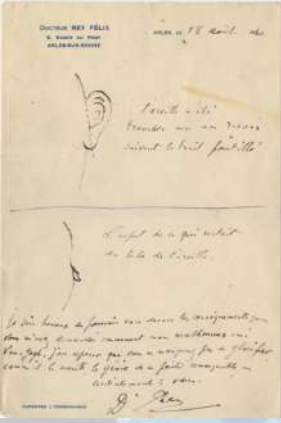 DOCTEUR REY FÉLIX
6, RAMPE DU PONT
ARLES-SUR-RHONE
ARLES, LE 18 août
L'oreille a été
tranchée avec un rasoir
suivant le trait pointillé
L'aspect de ce qui restait
du lobe de l'oreille.
Je suis heureux de pouvoir vous donner les renseignements que
vous m'avez demandés concernant mon malheureux ami
Van Gogh. J'ose espérer que vous ne manquerez pas de glorifier
comme il le mérite, le génie de ce peintre remarquable
cordialement à vous
Dr Rey